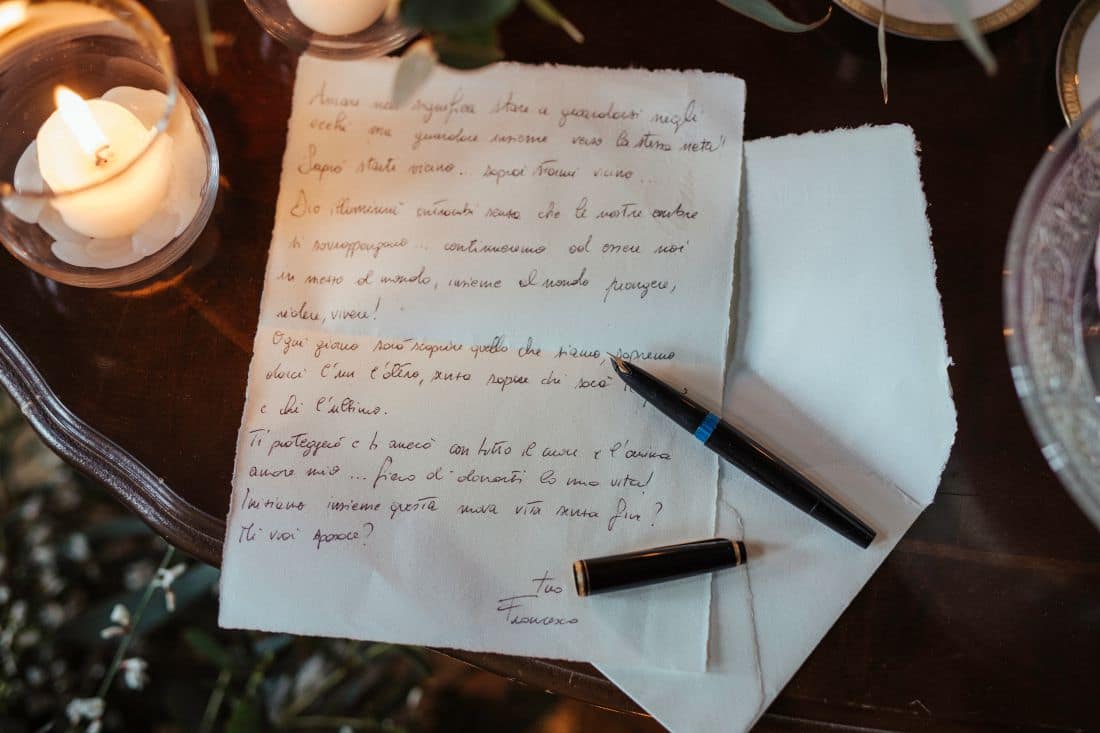 Amare non significa stare a guardarsi negli
occhi ma guardare insieme verso la stessa meta!
Saprò starti vicino... saprai starmi vicino...
Dio illumini entrambi senza che le nostre ombre
si sovrappongano... continueremo ad essere noi
in mezzo al mondo, insieme al mondo piangere,
ridere, vivere!
Ogni giorno sarà scoprire quello che siamo, sapremo
darci l'un l'altro, senza sapere chi sarà
e chi l'ultimo.
Ti proteggerò e ti amerò con tutto il cuore e l'anima
amore mio... fiero di donarti la mia vita!
Iniziamo insieme questa nuova vita senza fine?
Mi vuoi sposare?
tuo
Francesco